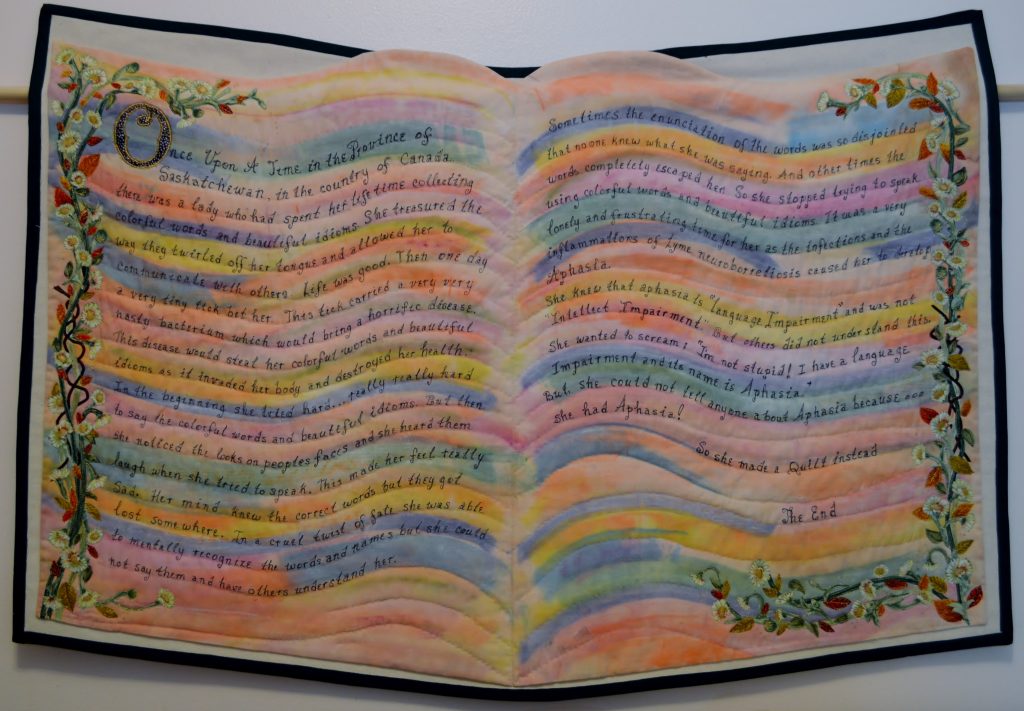 Once Upon A Time in the Province of
Saskatchewan, in the country of Canada
there was a lady who had spent her lifetime collecting
colorful words and beautiful idioms. She treasured the
way they twirled off her tongue and allowed her to
communicate with others. Life was good. Then one day
a very tiny tick bit her. This tick carried a very very
nasty bacterium which would bring a horrific disease.
This disease would steal her colorful words and beautiful
idioms as it invaded her body and destroyed her health.
In the beginning she tried hard... really really hard
to say the colorful words and beautiful idioms. But then
she noticed the looks on peoples faces and she heard them
laugh when she tried to speak. This made her feel really
sad. Her mind knew the correct words but they got
lost somewhere. In a cruel twist of fate she was able
to mentally recognize the words and names but she could
not say them and have others understand her.
Sometimes the enunciation of the words was so disjointed
that no one knew what she was saying. And other times the
words completely escaped her. So she stopped trying to speak
using colorful words and beautiful idioms. It was a very
lonely and frustrating time for her as the infections and the
inflammations of Lyme neuroborreliosis caused her to develop
Aphasia.
She knew that aphasia is "language Impairment" and was not
"Intellect Impairment." But others did not understand this.
She wanted to scream; "I'm not stupid! I have a language
Impairment and its name is Aphasia."
But, she could not tell anyone about Aphasia because ...
she had Aphasia!
So she made a Quilt instead
The End